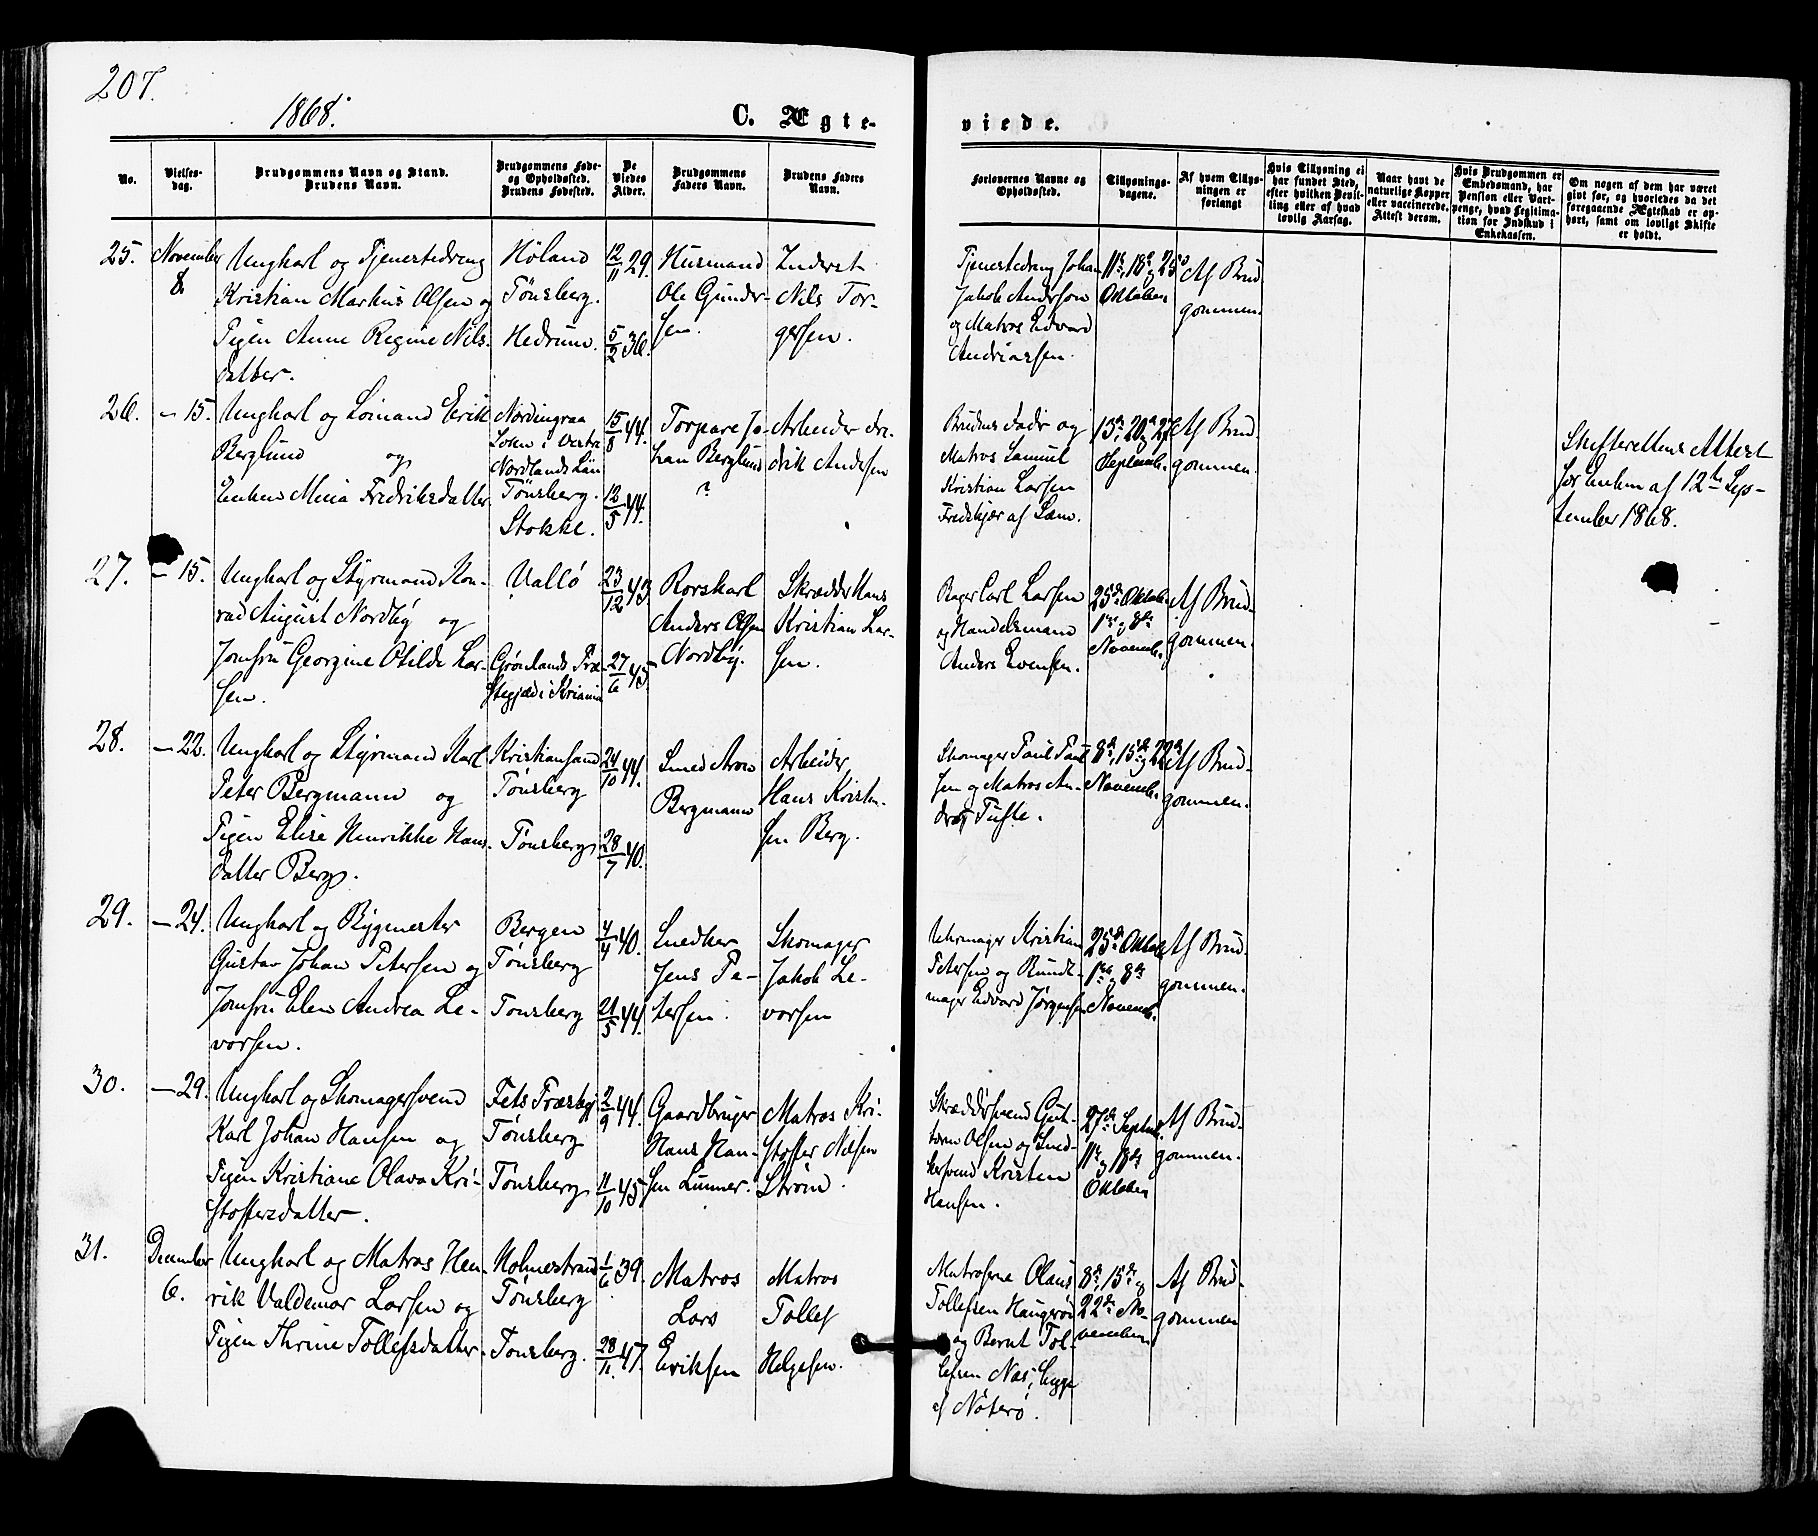 207.
1868.
C. Ægte-
viede.
No.
Vielses-
dag.
Brudgommens Navn og Stand.
Brudens Navn.
Brudgommens Føde-
og Opholdssted.
Brudens Fødested.
De
Viedes
Alder.
Brudgommens
Faders Navn.
Brudens Faders
Navn.
Forlovernes Navne og
Opholdssted.
Tillysnings-
dagene.
Af hvem Tillys-
ningen er
forlangt
Hvis Tillysning ei
har fundet Sted,
efter hvilken Bevil-
ling eller af hvad
lovlig Aarsag.
Naar havt de
naturlige Kopper
eller vaccinerede.
Attest derom.
Hvis Brudgommen er
Embedsmand, har
Pension eller Vart-
penge, hvad Legitima-
tion for Indskud i
Enkekassen.
Om nogen af dem har været
gift før, og hvorledes da det
foregaaende Ægteskab er op-
hørt, samt om lovligt Skifte
er holdt.
25.
November
8.
Ungkarl og Tjenestedreng
Kristian Markus Olsen og
Pigen Anne Regine Nils-
datter.
Höland
Tönsberg.
Hedrum.
12/11 29.
5/2 36.
Husmand
Ole Gunder-
sen.
Inderst
Nils Tor-
gersen.
Tjenestedreng Johan
Jakob Andersen
og Matros Edvard
Andriassen.
11te, 18de, 25de
Oktober
Af Brud-
gommen.
26.
- 15.
Ungkarl og Loimand Erik
Berglund og
Enken Mina Fredriksdatter
Nordingraa
Sokn i Vestra
Nordlands Län
Tönsberg.
Stokke.
15/8 44.
12/5 44.
Torpare Jo-
han Berglund
?
Arbeider Fre-
drik Andersen
Brudens Fader og
Matros Samuel
Kristian Larsen
Fredskjær af Sem.
13de, 20de og 27de
Septemb.
Af Brud-
gommen.
Skifterettens Attest
for Enken af 12te Sep-
tember 1868.
27.
- 15.
Ungkarl og Styrmand Kon-
rad August Nordby og
Jomfru Georgine Otilde Lar-
sen.
Vallö
Grönlands Præ-
stegjæld i Kriania
23/12 43.
27/6 45.
Rorskarl
Anders Olsen
Nordby.
Skrædder Hans
Kristian Lar-
sen.
Bager Carl Larsen
og Handelsmand
Anders Evensen.
25de Oktober
1ste og 8de
Novemb.
Af Brud-
gommen.
28.
- 22.
Ungkarl og Styrmand Karl
Peter Bergmann og
Pigen Elise Henrikke Hans-
datter Berg.
Kristianssand
Tönsberg
Tönsberg
24/10 44.
28/7 40.
Smed Aron
Bergmann
Arbeider
Hans Kristen-
sen Berg.
Skomager Paul Paul-
sen og Matros An-
dreas Tufte.
8de, 15de og 22de
Novemb.
Af Brud-
gommen.
29.
- 24.
Ungkarl og Bygmester
Gustav Johan Petersen og
Jomfru Elen Andrea Le-
vorsen.
Bergen
Tönsberg
Tönsberg
4/4 40.
21/5 44.
Snedker
Jens Pe-
tersen.
Skomager
Jakob Le-
vorsen
Uhrmager Kristian
Petersen og Bundt-
mager Edvard Jörgensen
25de Oktober
1ste og 8de
Novemb.
Af Brud-
gommen.
30.
- 29.
Ungkarl og Skomagersvend
Karl Johan Hansen og
Pigen Kristiane Olava Kri-
stoffersdatter.
Fets Præstegj
Tönsberg
Tönsberg
2/9 44.
11/10 45.
Gaardbruger
Hans Han-
sen Lunner.
Matros Kri-
stoffer Nilsen
Ström.
Skræddersvend Gut-
torm Olsen og Sned-
kersvend Kristen
Hansen.
27de Septmb.
11te og 18de
Oktober
Af Brud-
gommen.
31.
December
6.
Ungkarl og Matros Hen-
rik Valdemar Larsen og
Pigen Thrine Tollefsdatter.
Holmestrand
Tönsberg
Tönsberg.
1/6 39.
28/11 47.
Matros
Lars
Eriksen
Matros
Tollef
Helgesen.
Matroserne Olaus
Tollefsen Haugeröd
og Bernt Tol-
lefsen Næs, begge
af Nöterö.
8de, 15de og
22de No-
vember
Af Brud-
gommen